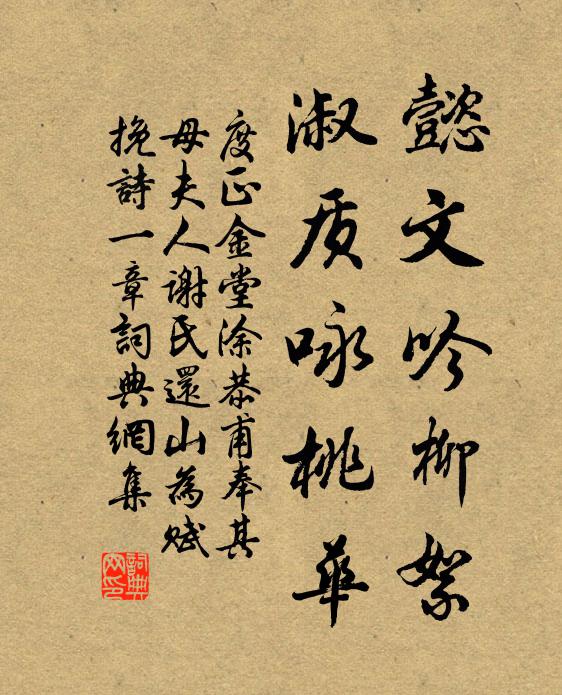 懿文吟柳絮
淑质咏桃华
度正金堂涂恭甫奉其
母夫人谢氏還山為赋
挽詩一章詞典網集
詞典网印